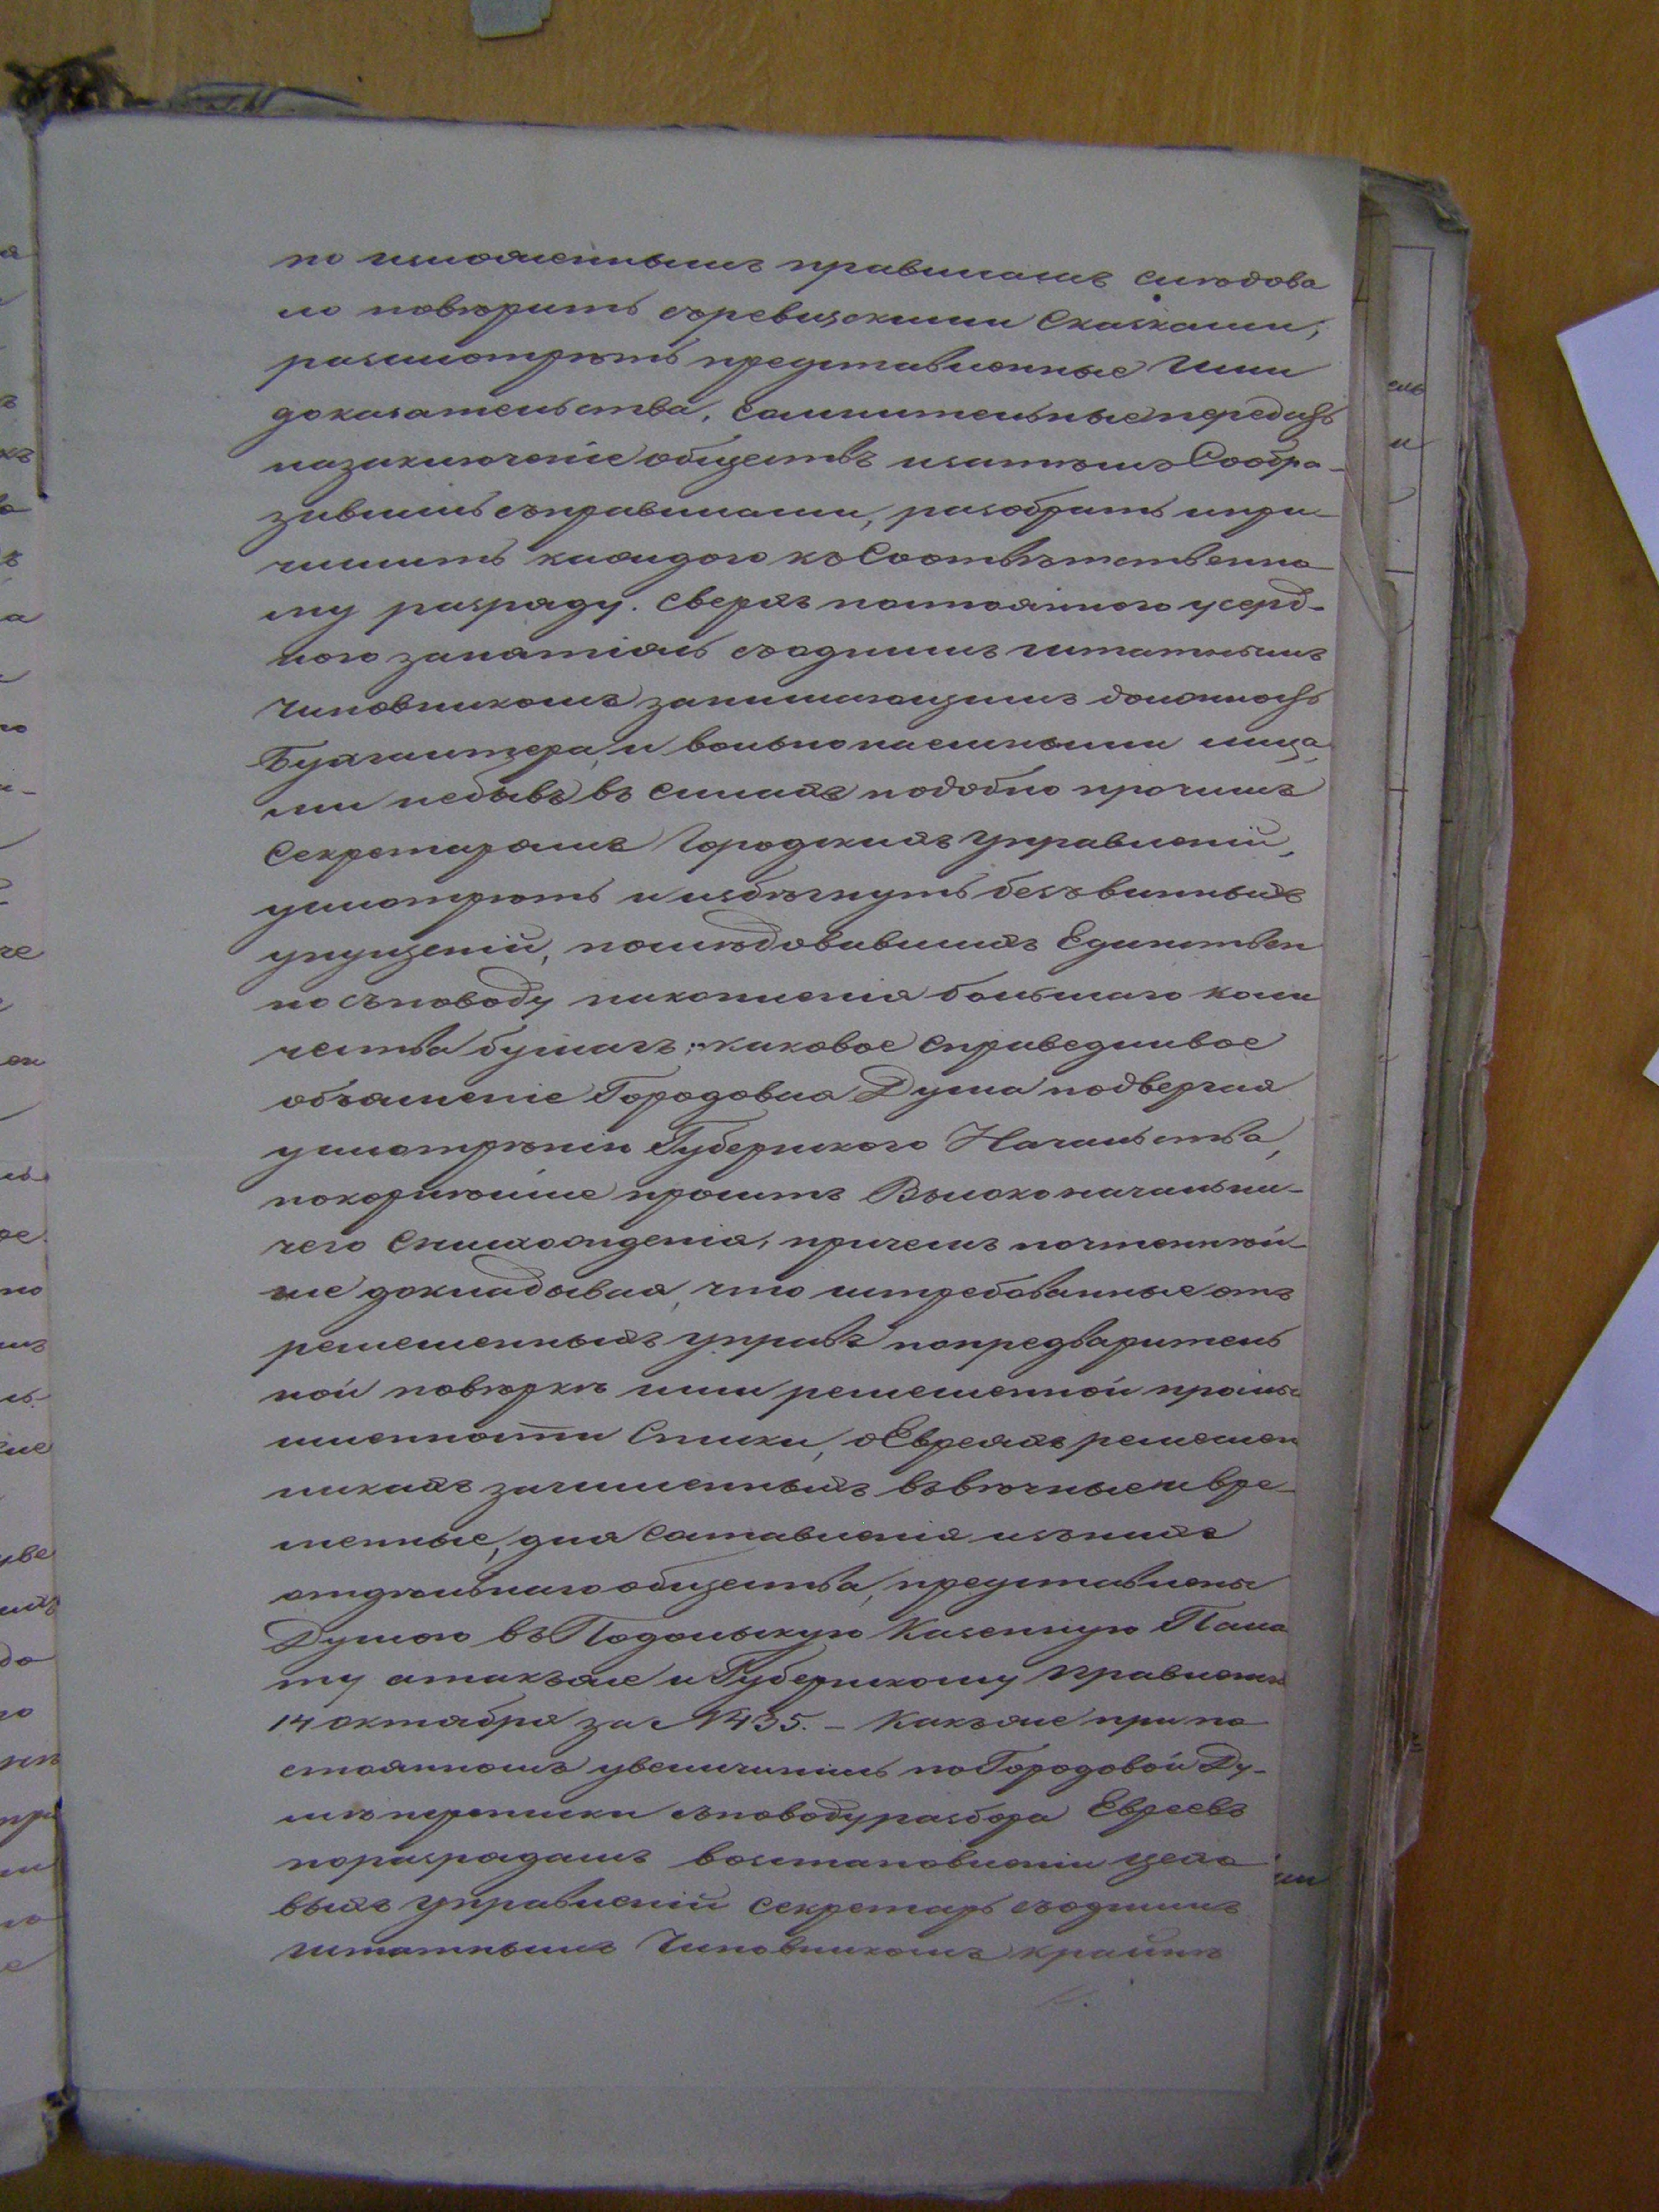 по изложеннымъ правиламъ слѣдова
ло повѣрить съревизскими Сказками,
разсмотрѣть представленные Ими
доказательства, сомнительные передать
назаключеніе обществъ изатѣмъ Сообра-
зившись справилами, разобрать ипри-
числить каждого къ Соотвѣтственно
му разряду. Сверхъ постоянного усерд-
ного занятіемъ съоднимъ штатнымъ
Чиновникомъ занимающимъ должность
Бухгалтера, и вольнонаемными лица
ми небывъ въ силахъ подобно прочимъ
Секретарямъ Городскихъ Управленій,
усмотрѣть и избѣгнуть безъвинныхъ
упущеній, послѣдовавшихъ Единствен
но съповоду накопленія большаго коли
чества бумагъ; каковое справедливое
объясненіе Городовая Дума подвергая
усмотрѣнію Губернского Начальства,
покорнѣйше проситъ Высоконачальни-
чего Снисхожденія, причемъ почтеннѣй-
ше докладывая, что истребованные отъ
ремесленныхъ управъ попредварителъ
ной повѣркѣ ими ремесленной промы
шленности Списки, оЕвреяхъ ремеслен
никахъ зачисленныхъ въвѣчные и вре-
менные, для Составленія изънихъ
отдѣльнаго общества, представлены
Думою въ Подольскую Казенную Пала
ту атакъже и Губернскому правленію
14 октября за № 1435. – Какъже при по
стоянномъ увеличиніи по Городовой Ду-
мѣ переписки съповоду разбора Евреевъ
поразрядамъ возстановленіи цехо
выхъ Управленій секретарь съоднимъ
штатнымъ Чиновникомъ крайнѣ